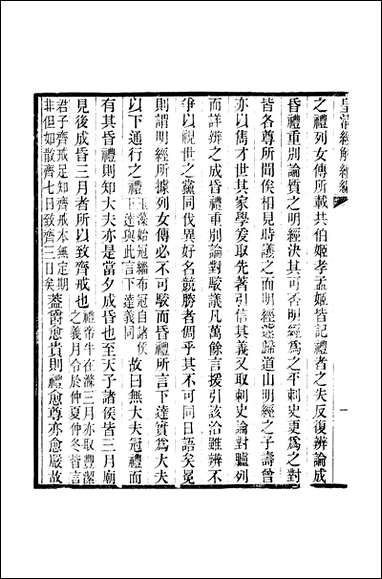 皇清經解續編
一
之禮列女傳所載共伯姬孝孟姬皆記禮者之失反復辨論成
昏禮重別論質之明經決其可否明經為之平刺史更為之對
皆各尊所聞俟相見時議之而明經遽歸道山明經之子壽曾
亦以雋才世其家學爰取先著引信其義又取刺史論對臚列
而詳辨之成昏禮重別論對駁議凡萬餘言援引該洽雖辨不
爭以視世之黨同伐異好名競勝者倜乎其不可同日語矣冕
則謂明經所據列女傳必不可駮而昏禮所言下達實為大夫
以下通行之禮玉藻始冠緇布冠自諸侯下達與此言下達義同故曰無大夫冠禮而
有其昏禮則知大夫亦是當夕成昏也至天子諸侯皆三月廟
見後成昏三月者所以致齊戒也禮帝牛在滌三月亦取豐潔之義月令於仲夏仲冬皆言
君子齊戒足知齊戒本無定期非但如散齊七日致齊三日矣蓋爵愈貴則禮愈尊亦愈嚴故